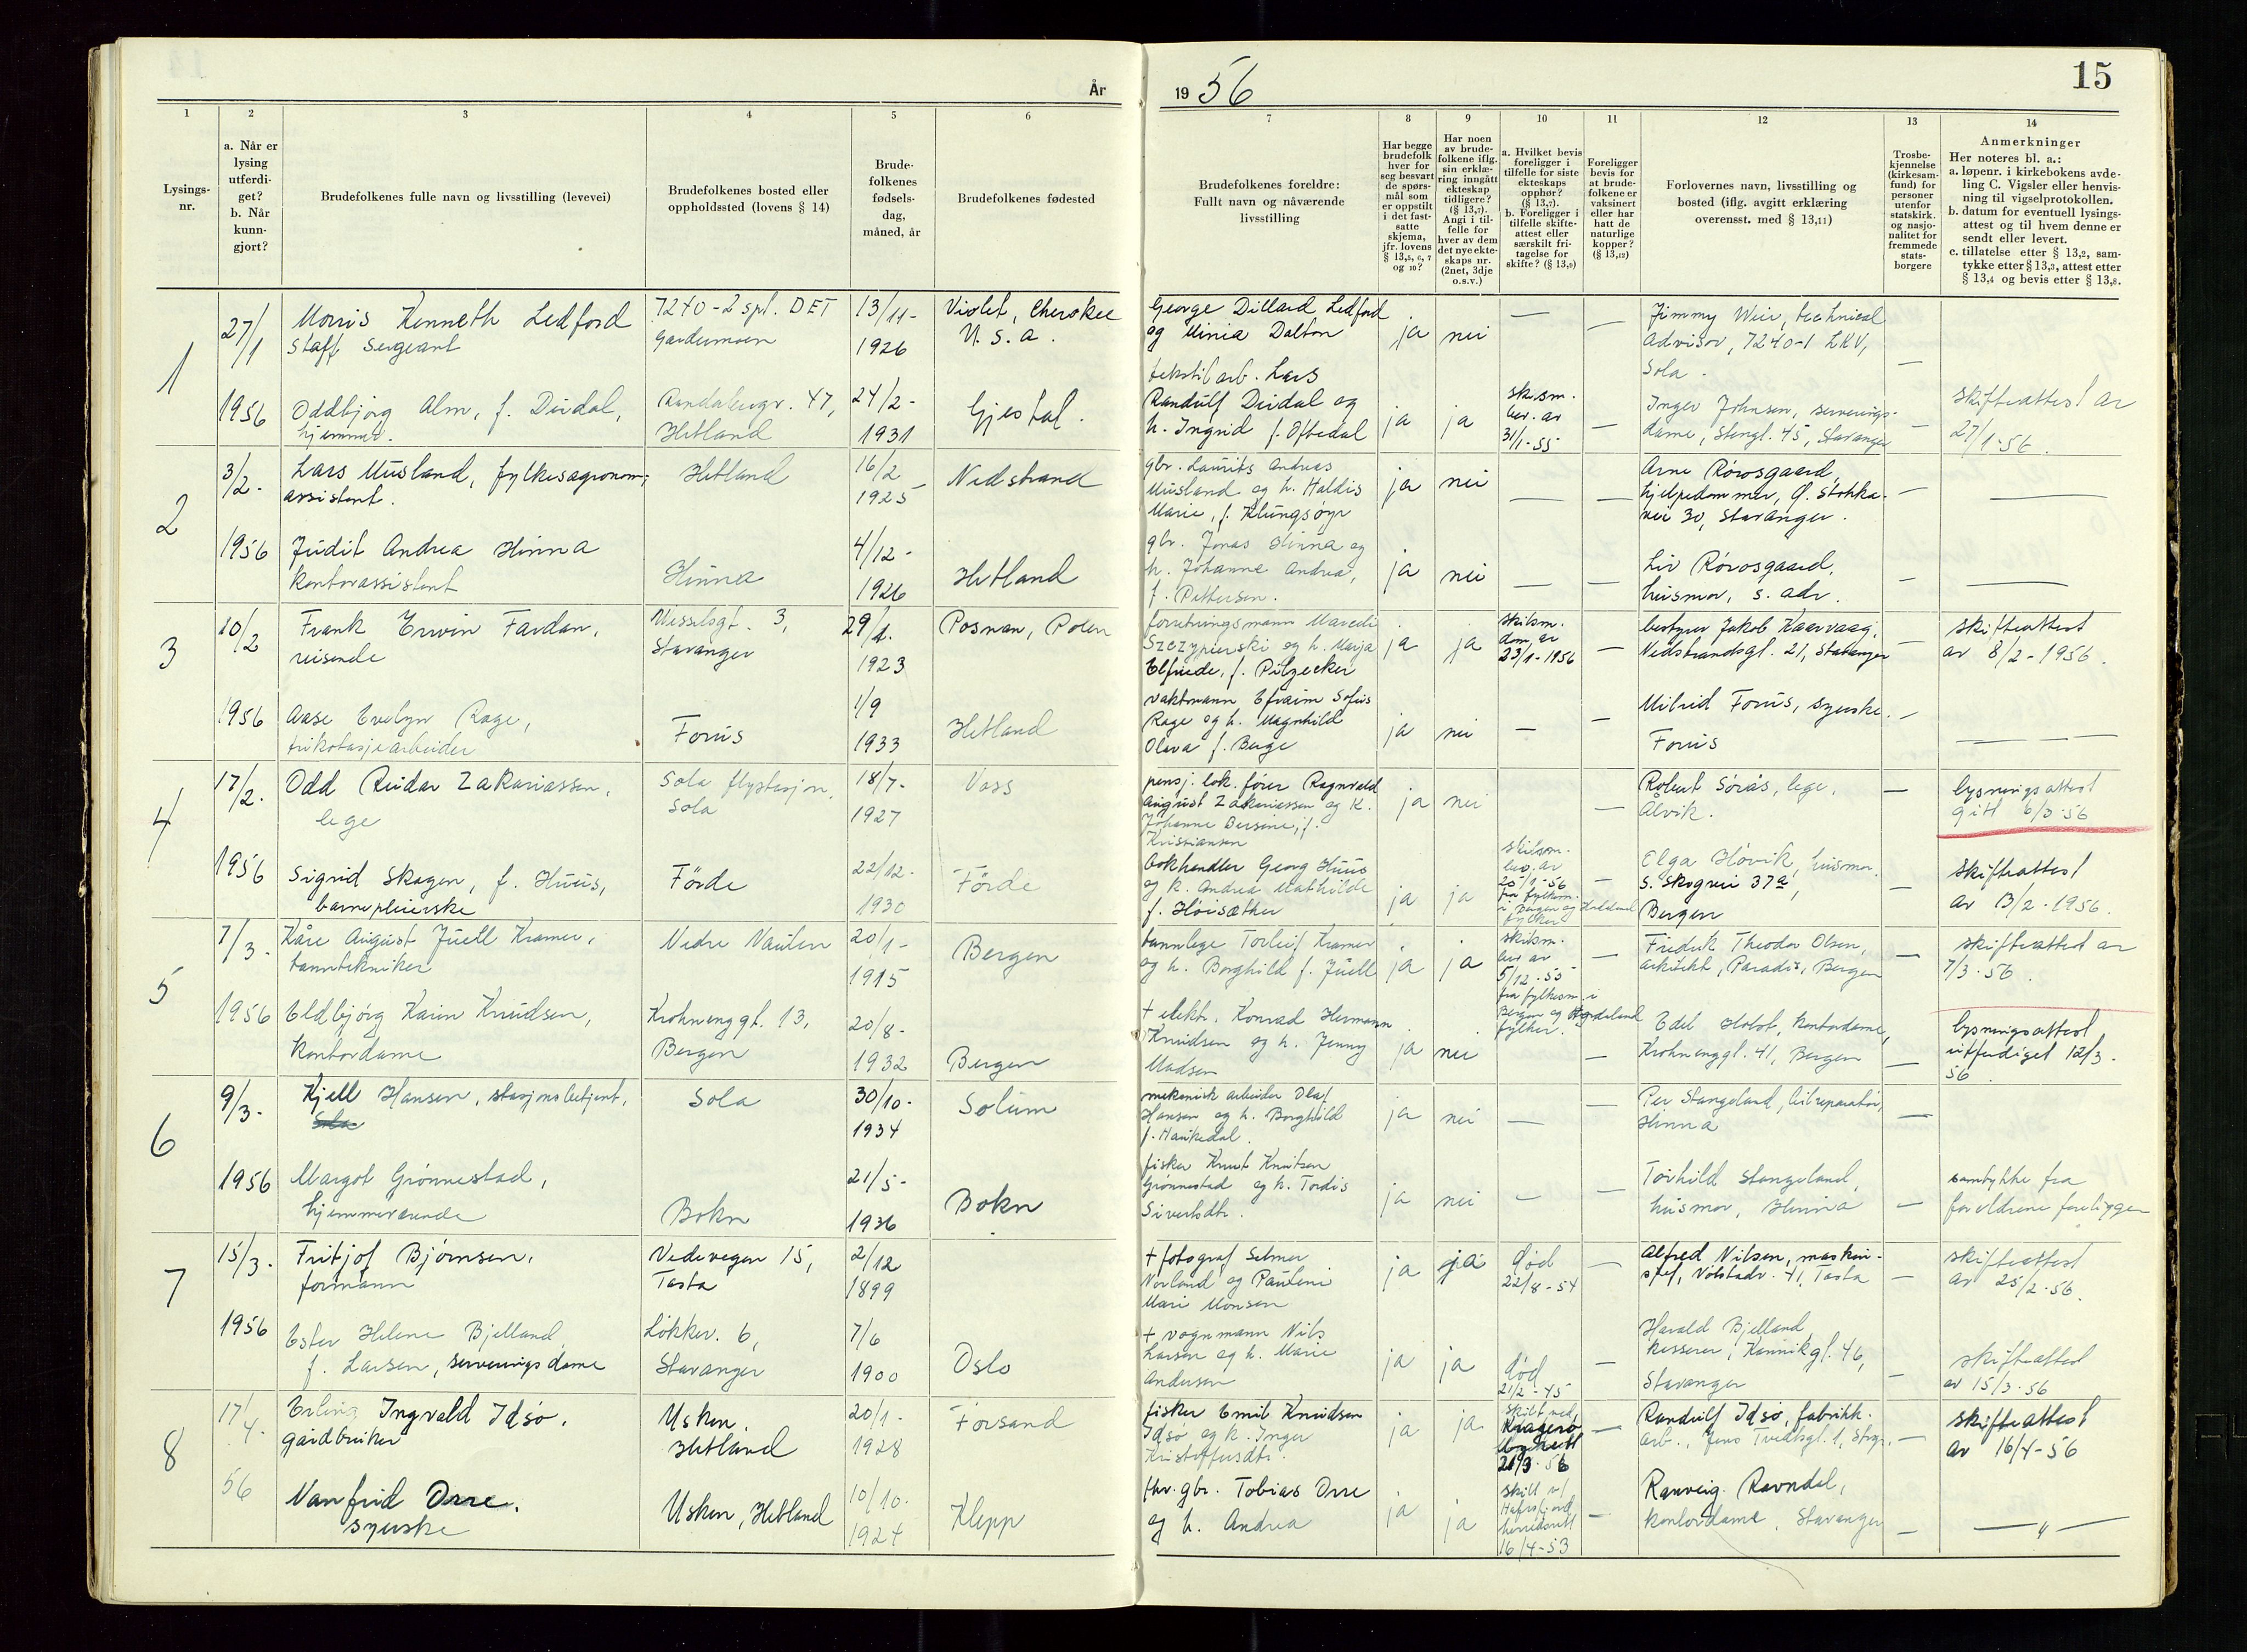 År
19 56
15
1
2
3
4
5
6
7
8
9
10
11
12
13
14
Lysings-
nr.
a. Når er
lysing
utferdi-
get?
b. Når
kunn-
gjort?
Brudefolkenes fulle navn og livsstilling (levevei)
Brudefolkenes bosted eller
oppholdssted (lovens § 14)
Brude-
folkenes
fødsels-
dag,
måned, år
Brudefolkenes fødested
Brudefolkenes foreldre:
Fullt navn og nåværende
livsstilling
Har begge
brudefolk
hver for
seg besvart
de spørs-
mål som
er oppstilt
i det fast-
satte
skjema,
jfr. lovens
§ 13,5, 6, 7
og 10?
Har noen
av brude-
folkene iflg.
sin erklæ-
ring inngått
ekteskap
tidligere?
(§ 13,7).
Angi i til-
felle for
hver av dem
det nye ekte-
skaps nr.
(2net, 3dje
o.s.v.)
a. Hvilket bevis
foreligger i
tilfelle for siste
ekteskaps
opphør?
(§ 13,7).
b. Foreligger i
tilfelle skifte-
attest eller
særskilt fri-
tagelse for
skifte? (§ 13,9)
Foreligger
bevis for
at brude-
folkene er
vaksinert
eller har
hatt de
naturlige
kopper?
(§ 13,12)
Forlovernes navn, livsstilling og
bosted (iflg. avgitt erklæring
overensst. med § 13,11)
Trosbe-
kjennelse
(kirkesam-
fund) for
personer
utenfor
statskirk.
og nasjo-
nalitet for
fremmede
stats-
borgere
Anmerkninger
Her noteres bl. a.:
a. løpenr. i kirkebokens avde-
ling C. Vigsler eller henvis-
ning til vigselprotokollen.
b. datum for eventuell lysings-
attest og til hvem denne er
sendt eller levert.
c. tillatelse etter § 13,2, sam-
tykke etter § 13,3, attest etter
§ 13,4 og bevis etter § 13,8.
1
27/1
1956
Morris Kenneth Ledford
Staff Sergeant
7240-2 spt. DET
Gardermoen
13/11-
1926
Violet, Cherokee
U.S.A.
George Dillard Ledford
og Minia Dalton
ja
nei
—
—
Jimmy Weir, technical
advisor, 7240-1 LKV,
Sola.
—
Oddbjørg Alm, f. Dirdal,
hjemmev.
47,
Hetland
24/2-
1931
Gjestal.
tekstilarb. Lars
Randulf Dirdal og
h. Ingrid f. Oftedal
ja
ja
skilsm.
bev. av
31/1-55
—
Inger Johnsen, serverings-
dame, Stengt. 45, Stavanger
—
Skifteattest av
27/1-56.
2
3/2-
1956
Lars Musland, fylkesagronom-
assistent.
Hetland
16/2
1925
Nedstrand
gbr. Laurits Andreas
Musland og h. Haldis
Marie, f. Klungsøyr
ja
nei
—
—
Arne Rørosgaard,
hjelpedommer, Ø. Stokka-
vei 30, Stavanger.
—
—
Judit Andrea Hinna
kontorassistent
Hinna
4/12-
1926
Hetland
gbr. Jonas Hinna og
h. Johanne Andrea,
f. Pettersen.
ja
nei
—
—
Liv Rørosgaard,
husmor, s. adr.
—
—
3
10/2
1956
Frank Erwin Fardan,
reisende
Wesselsgt. 3,
Stavanger
29/1.
1923
Posnan, Polen
forretningsmann
Szczypierski og h. Marja
Elfriede, f. Pilzecker
ja
ja
skilsm.
dom av
23/1-1956
—
bestyrer Jakob Kaarvaag,
Nedstrandsgt. 21, Stavanger
—
skifteattest
av 8/2-1956.
Aase Evelyn Rage,
trikotasjearbeider
Forus
1/9
1933
Hetland
vaktmann Efraim Sofus
Rage og h. Magnhild
Olava f. Berge
ja
nei
—
—
Milrid Forus, syerske.
Forus
—
— — —
4
17/2.
1956
Odd Reidar Zakariassen,
lege
Sola flystasjon,
Sola
18/7-
1927
Voss
pensj. lok. fører Ragnvald
August Zakariassen og h.
Johanne Bersine, f.
Kristiansen
ja
nei
—
Robert Sørås, lege,
Ålvik.
—
lysningsattest
gitt 6/3-56
Sigrid Skagen, f. Huus,
barnepleierske
Førde
22/12-
1930
Førde
bokhandler Georg Huus
og h. Andrea Mathilde
f. Høisæther
ja
ja
skilsm.
bev. av
25/1-56
fra fylkesm.
i Bergen og Hordaland
fylker
—
Olga Høvik, husmor.
S. Skogvei 37a,
Bergen
—
Skifteattest
av 13/2-1956.
5
7/3-
1956
Kåre August Juell Kramer,
tanntekniker
Nedre Nattland
20/1-
1915
Bergen
tannlege Torleif Kramer
og h. Borghild f. Juell
ja
ja
skilsm.
bev. av
5/12-55
fra fylkesm. i
Bergen og Hordaland
fylker.
—
Fredrik Theodor Olsen,
arkitekt, Paradis, Bergen
—
skifteattest av
7/3-56.
Eldbjørg Karin Knudsen,
kontordame
Krohnenggt. 13,
Bergen
20/8-
1932
Bergen
+ elekt. Konrad Hermann
Knudsen og h. Jenny
Madsen
ja
nei
—
Edel Holst, kontordame,
Krohnenggt. 41, Bergen
—
lysningsattest
utferdiget 12/3-
56
6
9/3-
1956
Kjell Hansen, stasjonsbetjent,
Sola
30/10-
1934
Solum
mekanisk arbeider Olaf
Hansen og h. Borghild
f. Haukedal.
ja
nei
—
—
Per Stangeland, bilreparatør,
Hinna
—
Margot Grønnestad,
hjemmeværende
Bokn
21/5-
1936
Bokn
fisker Knut Knutsen
Grønnestad og h. Tordis
Sivertsdtr.
ja
nei
—
—
Torhild Stangeland,
husmor, Hinna
—
samtykke fra
foreldrene foreligger
7
15/3-
1956
Fritjof Bjørnsen,
formann
Vedevegen 15,
Tasta
2/12
1899
+ fotograf Selmer
Norland og Pauline
Mari Monsen
ja
ja
død
22/8-54
—
Alfred Nilsen, maskin-
sjef, 41, Tasta
—
skifteattest
av 25/2-56.
Ester Helene Bjelland,
f. Larsen, serveringsdame
Løkkev. 6,
Stavanger
7/6
1900
Oslo
+ vognmann Nils
Larsen og h. Marie
Andersen
ja
ja
død
21/2-45
—
Harald Bjelland,
kasserer, Kannikgt. 46,
Stavanger
—
skifteattest
av 15/3-56
8
17/4-
56
Erling Ingvald Idsø,
gårdbruker
Usken,
Hetland
20/1-
1928
Forsand
fisker Emil Knudsen
Idsø og h. Inger
Kristoffersdtr.
ja
ja
skilt ved
Kragerø
byrett
21/3-56
—
Randulf Idsø, fabrikk-
arb., Jens Tvedtsgt. 1, Stvgr.
—
Skifteattest
av 16/4-56
Vanfrid Orre,
syerske
Usken, Hetland
10/10-
1924
Klepp
fhv. gbr. Tobias Orre
og h. Andrea
ja
ja
skilt v/
Hafrsfjord
herredsrett
16/4-53
—
Ranveig Ravndal,
kontordame, Stavanger
—
— " —